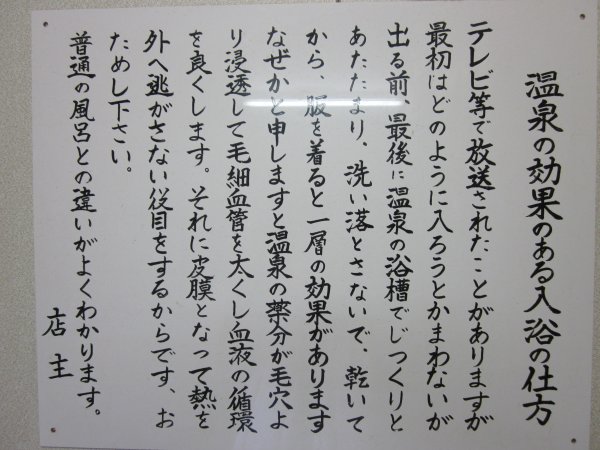 温泉の効果のある入浴の仕方
テレビ等で放送されたことがありますが
最初はどのように入ろうとかまわないが
出る前、最後に温泉の浴槽でじっくりと
あたたまり、洗い落とさないで、乾いて
から、服を着ると一層の効果があります
なぜかと申しますと温泉の薬分が毛穴よ
り浸透して毛細血管を太くし血液の循環
を良くします。それに皮膜となって熱を
外へ逃がさない役目をするからです、お
ためし下さい。
普通の風呂との違いがよくわかります。
店主